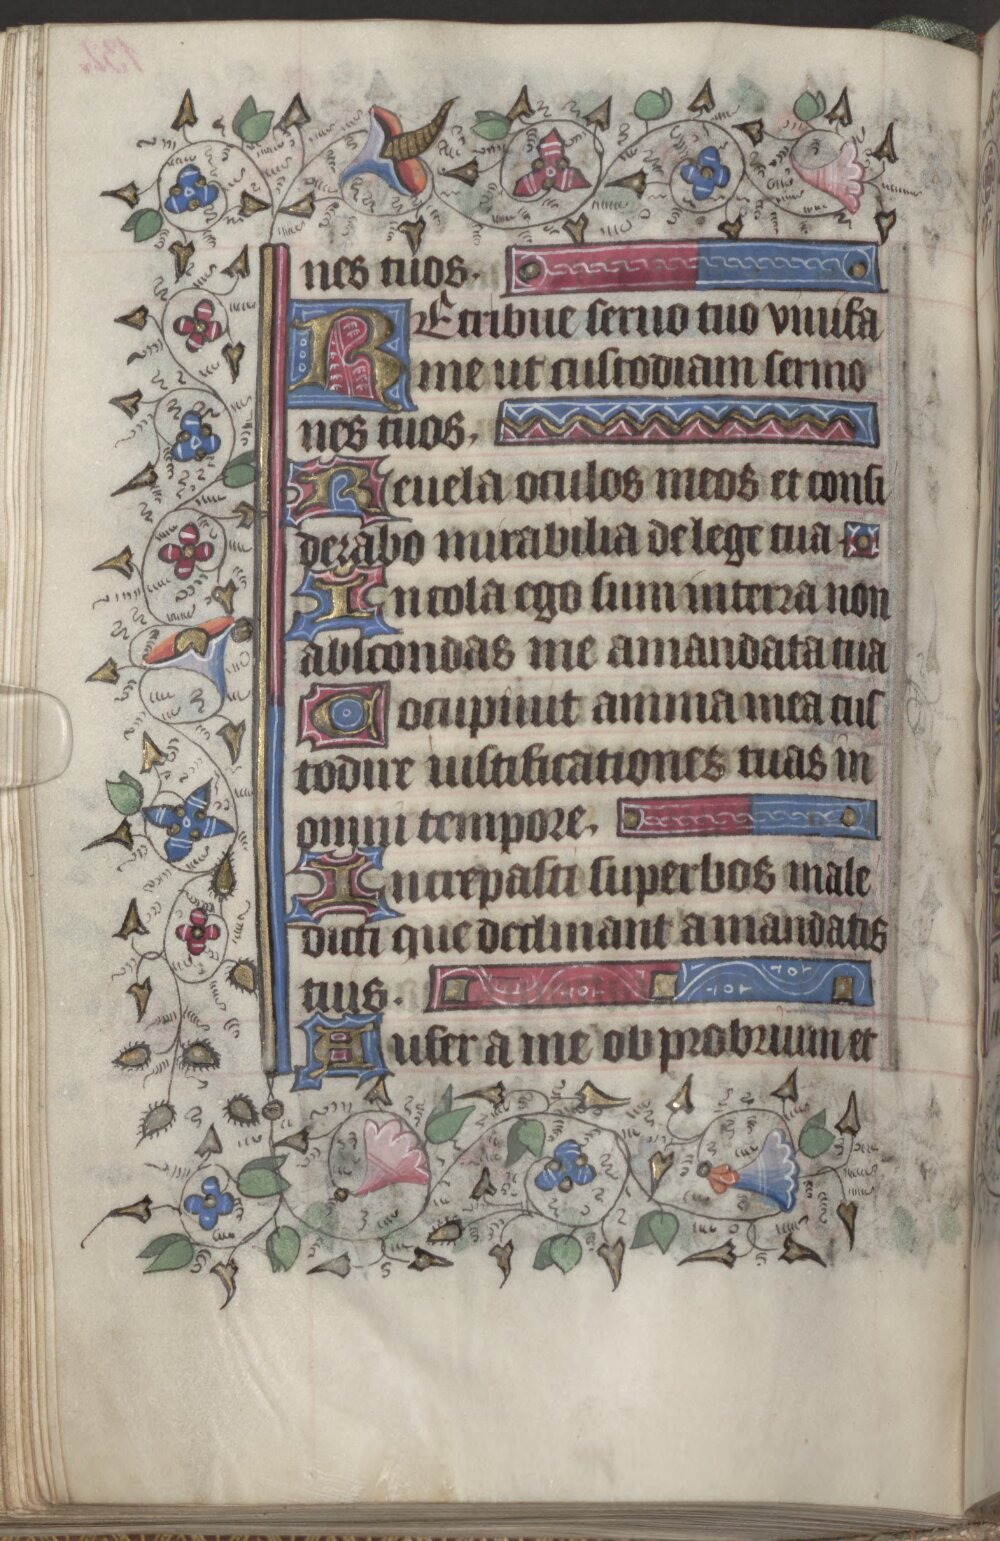 nes tuos.
REtribue seruo tuo viuifica
me ut custodiam sermo
nes tuos.
Reuela oculos meos et consi
derabo mirabilia de lege tua
Incola ego sum in terra non
abscondas me a mandata tua
Cocupiuit anima mea cus
todire iustificationes tuas in
omni tempore.
Increpasti superbos male
dicti que declinant a mandatis
tuis.
Aufer a me obprobrium et